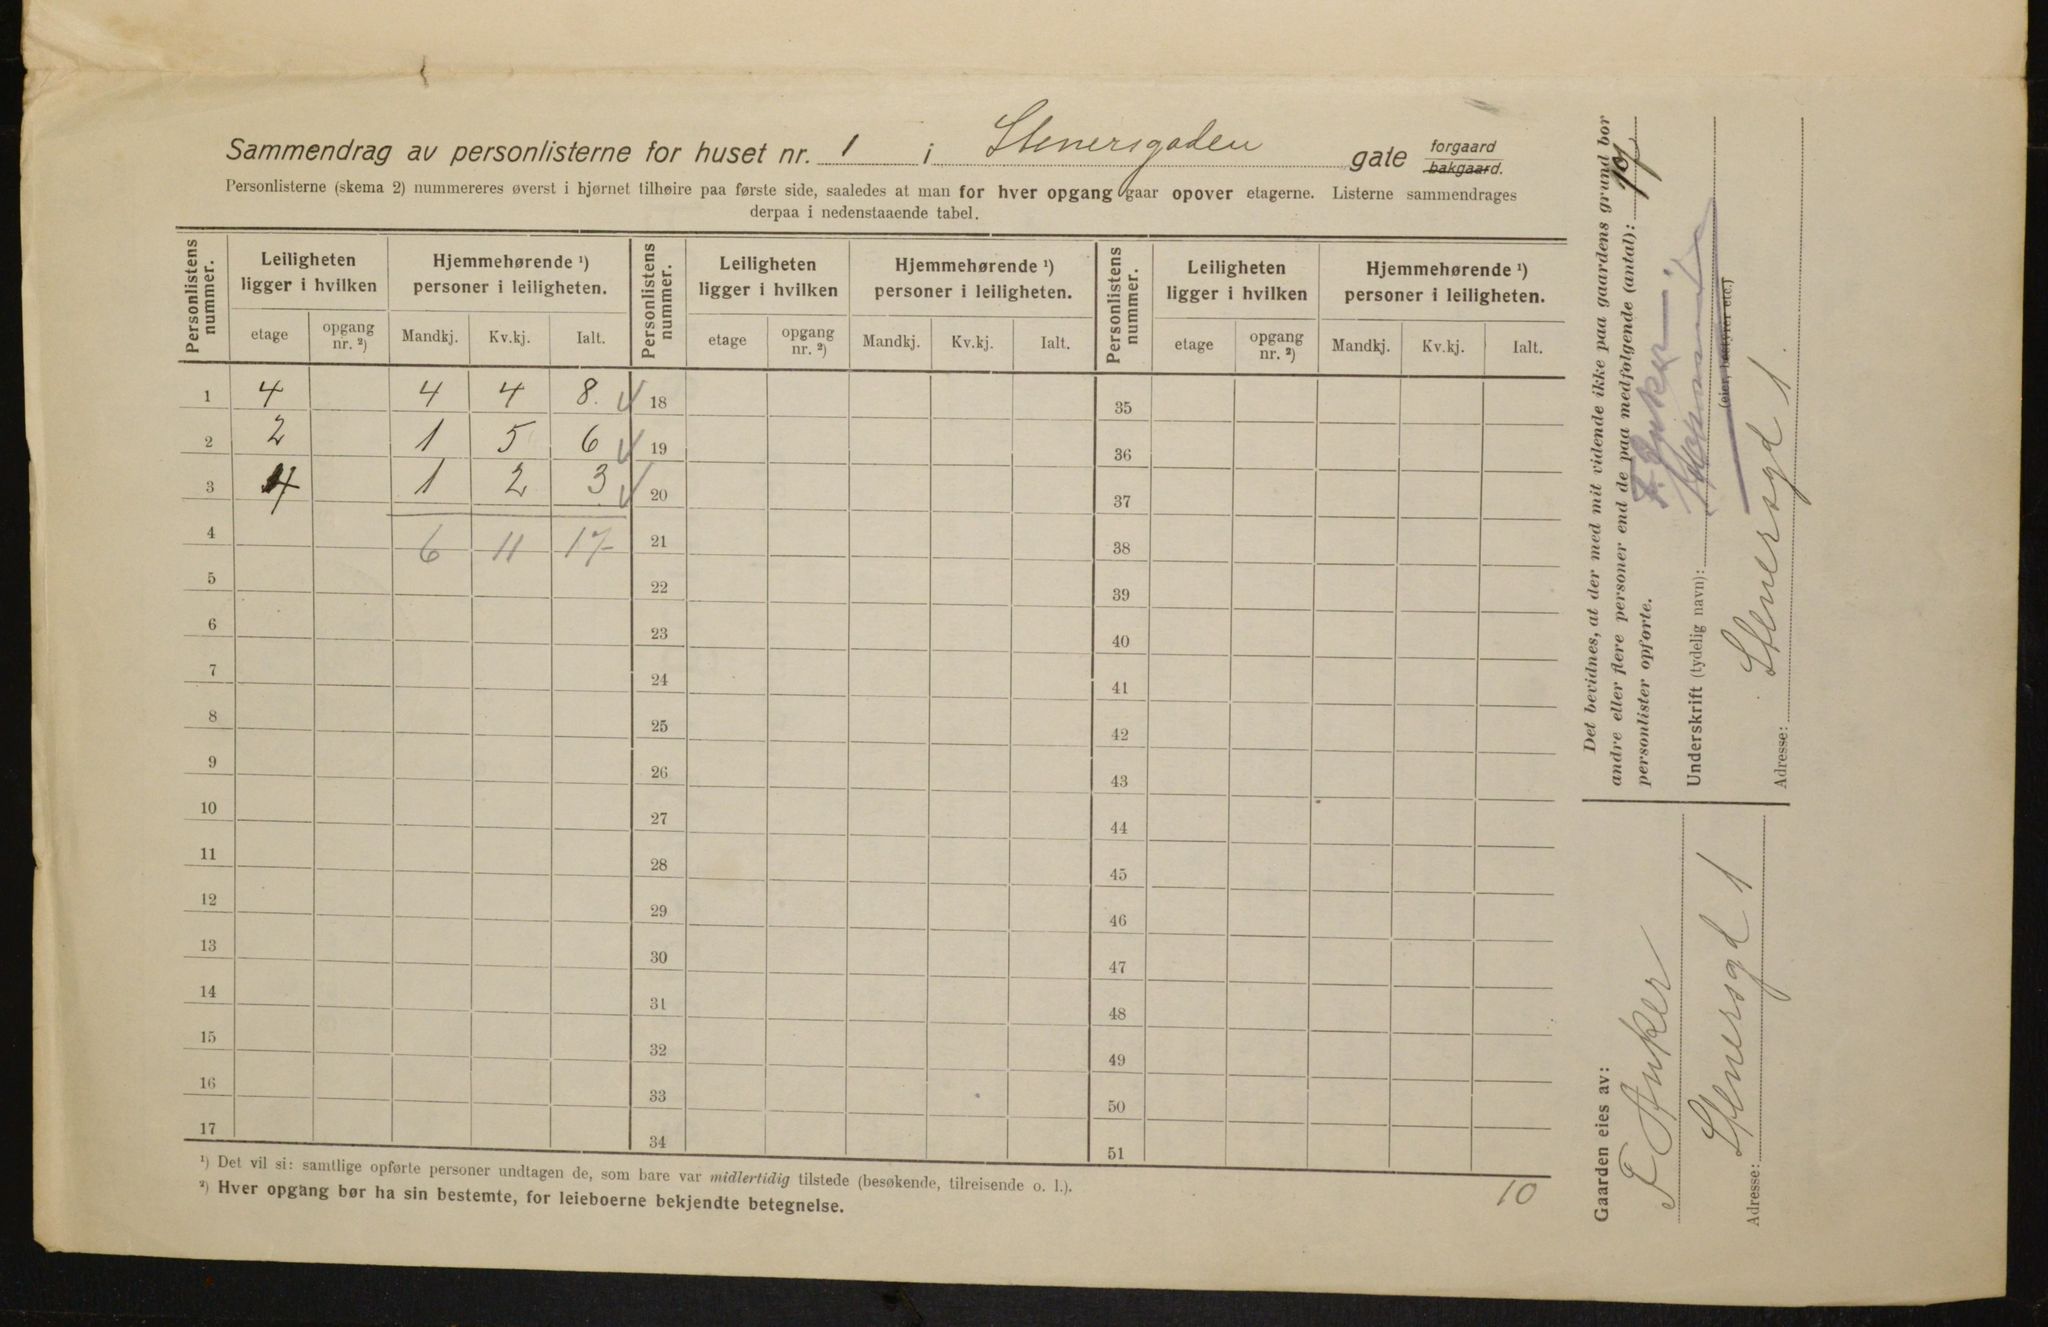 Sammendrag av personlisterne for huset nr. 1 i Stenersgaden gate forgaard bakgaard.
Personlisterne (skema 2) nummereres øverst i hjørnet tilhøire paa første side, saaledes at man for hver opgang gaar opover etagerne. Listerne sammendrages
derpaa i nedenstaaende tabel.
Personlistens nummer. Leiligheten ligger i hvilken Hjemmehørende ¹) personer i leiligheten. Personlistens nummer. Leiligheten ligger i hvilken Hjemmehørende ¹) personer i leiligheten. Personlistens nummer. Leiligheten ligger i hvilken Hjemmehørende ¹) personer i leiligheten.
etage opgang nr. ²) Mandkj. Kv.kj. Ialt. etage opgang nr. ²) Mandkj. Kv.kj. Ialt. etage opgang nr. ²) Mandkj. Kv.kj. Ialt.
1 4 4 4 8. 18 35
2 2 1 5 6 19 36
3 4 1 2 3 20 37
4 6 11 17 21 38
5 22 39
6 23 40
7 24 41
8 25 42
9 26 43
10 27 44
11 28 45
12 29 46
13 30 47
14 31 48
15 32 49
16 33 50
17 34 51
¹) Det vil si: samtlige opførte personer undtagen de, som bare var midlertidig tilstede (besøkende, tilreisende o. l.).
²) Hver opgang bør ha sin bestemte, for leieboerne bekjendte betegnelse.
10
Det bevidnes, at der med mit vidende ikke paa gaardens grund bor
andre eller flere personer end de paa medfølgende (antal):
personlister opførte.
Underskrift (tydelig navn): F. Anker
(eier, bestyrer etc.)
Adresse: Stenersgd 1.
Gaarden eies av:
F Anker
Adresse: Stenersgd 1